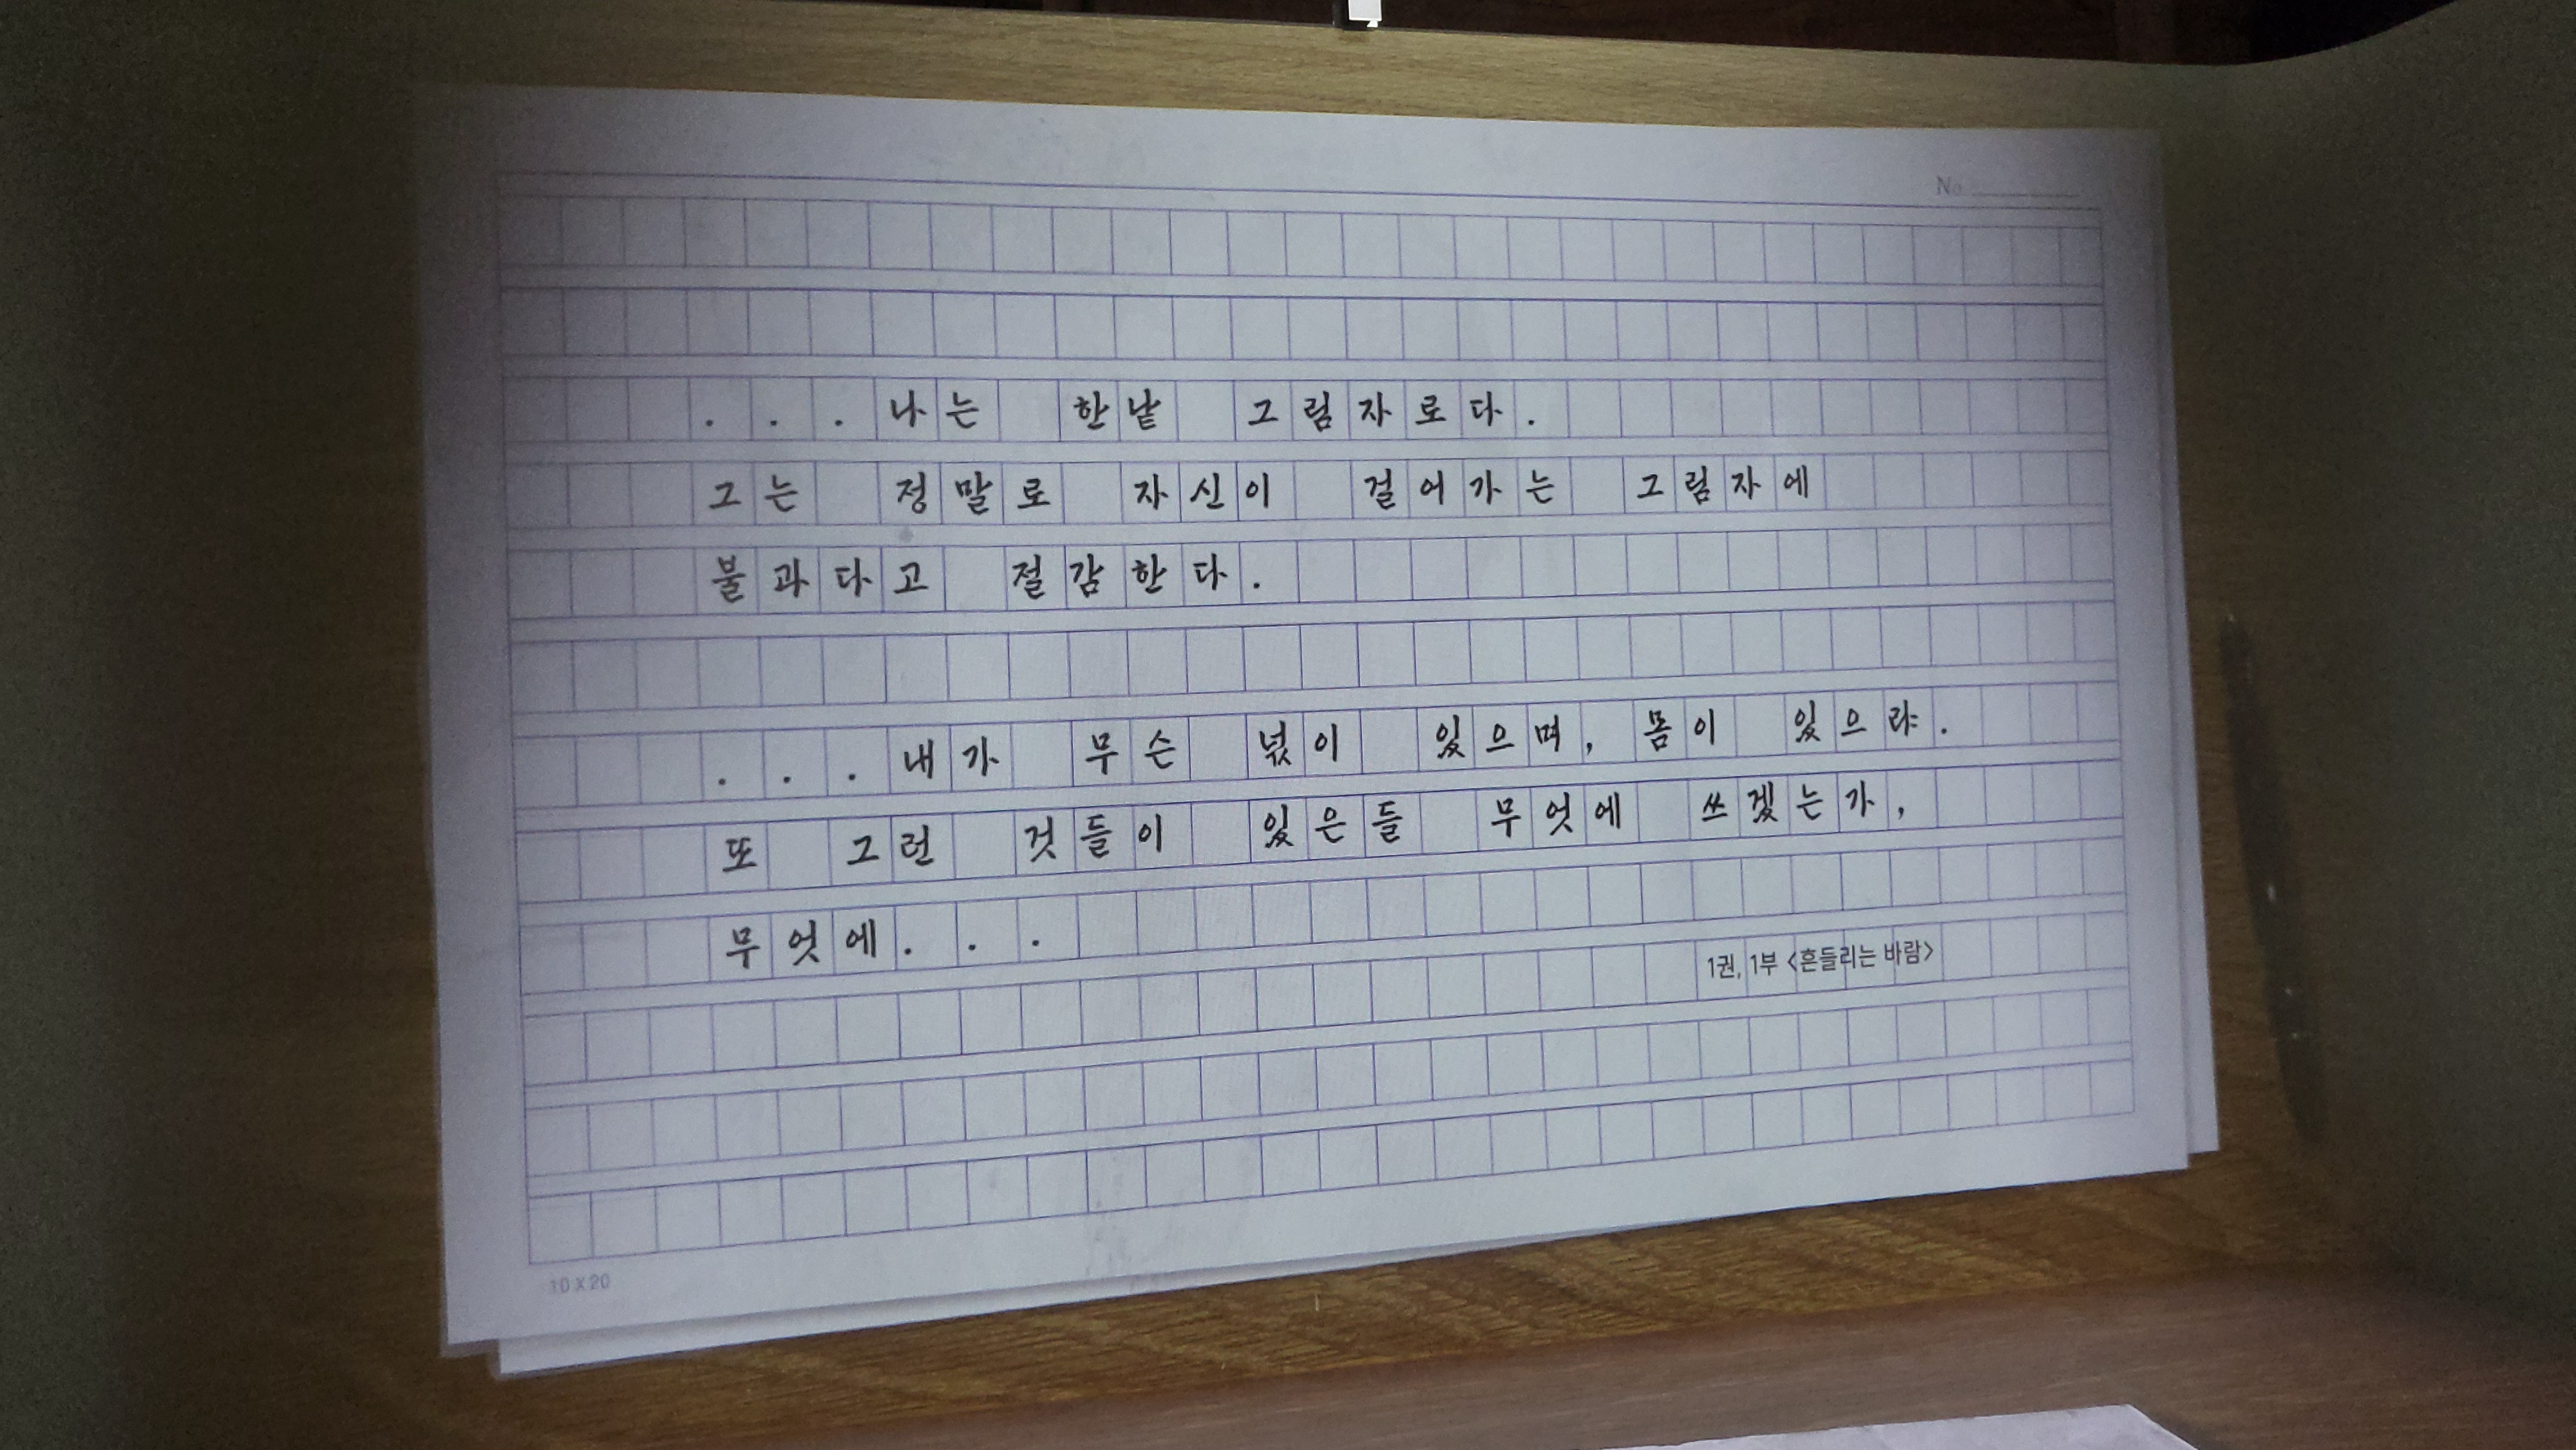 No.
...나는 한낱 그림자로다.
그는 정말로 자신이 걸어가는 그림자에
불과다고 절감한다.
...내가 무슨 넋이 있으며, 몸이 있으랴.
또 그런 것들이 있은들 무엇에 쓰겠는가,
무엇에...
1권, 1부 <흔들리는 바람>
10 X 20